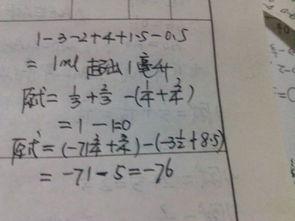 1-3-2+4+1.5-0.5
= 1ml 超出1毫升
原式= 1/3 + 2/3 -(1/4 + 2/4)
= 1-1=0
原式=(-71 2/4 + 2/4)-(-3 1/2 + 8.5)
= -71-5=-76